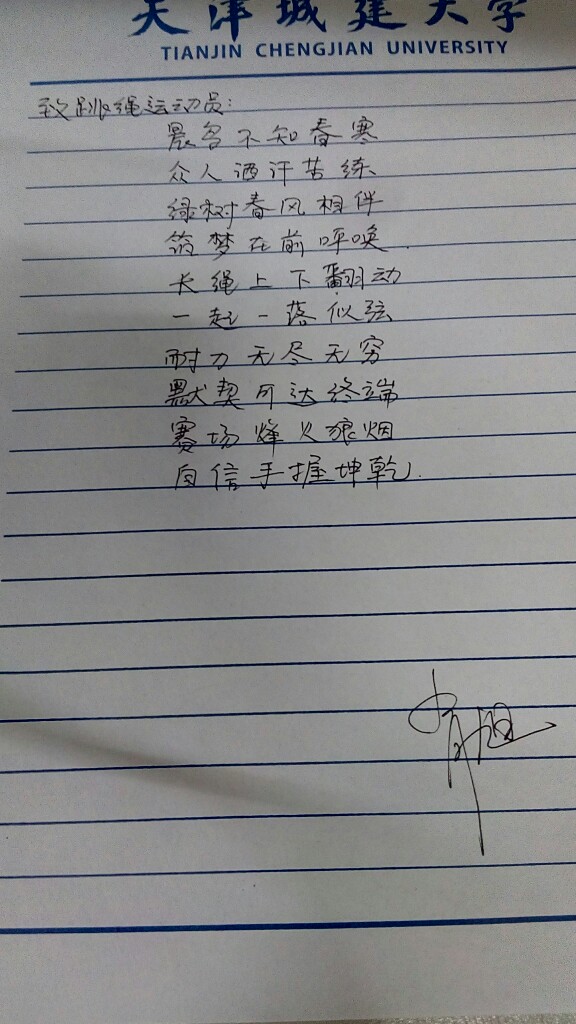 天津城建大学
TIANJIN CHENGJIAN UNIVERSITY
致跳绳运动员:
不知春寒
众人洒汗苦练
绿树春风相伴
筑梦在前呼唤.
长绳上下翻动
一起一落似弦
耐力无尽无穷
默契所达终端
赛场烽火狼烟
自信手握坤乾.